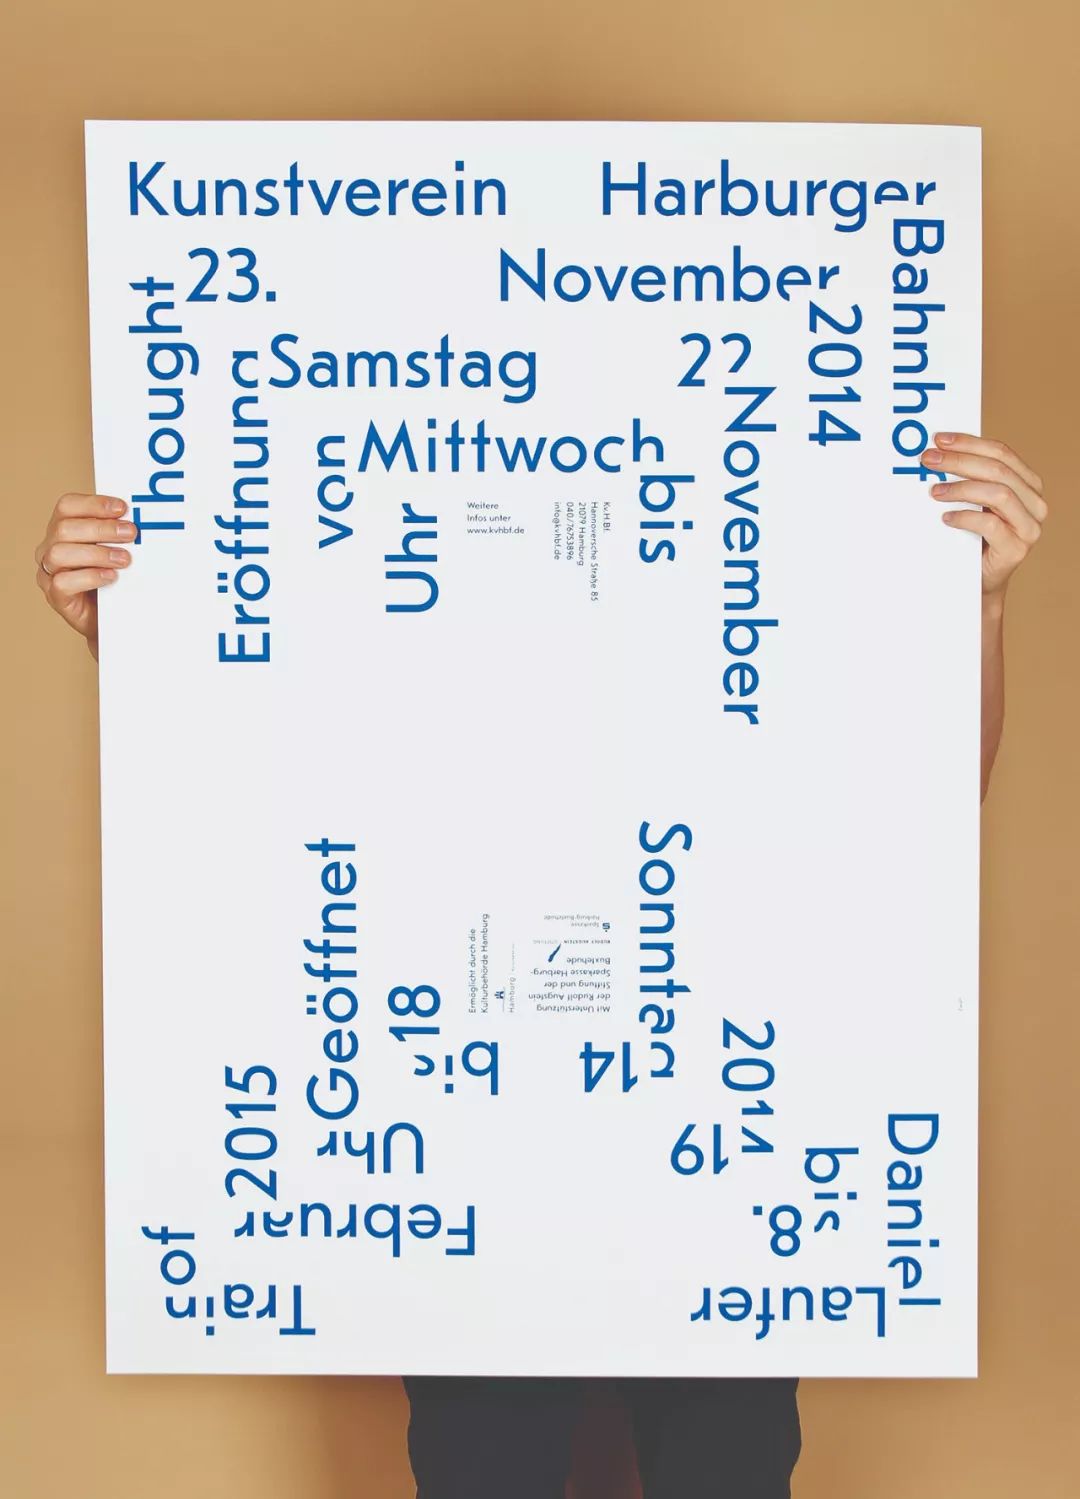 Kunstverein Harburger Bahnhof
Daniel Laufer
Train of Thought
23. November 2014
bis 8. Februar 2015
Eröffnung Samstag 22 November 2014
19 Uhr
Geöffnet von Mittwoch bis Sonntag
14 bis 18 Uhr
Weitere
Infos unter
www.kvhbf.de
Kv.H.Bf.
Hannoversche Straße 85
21079 Hamburg
040/76753896
info@kvhbf.de
Mit Unterstützung
der Rudolf Augstein
Stiftung und der
Sparkasse Harburg-
Buxtehude
RUDOLF AUGSTEIN STIFTUNG
Sparkasse
Harburg-Buxtehude
Ermöglicht durch die
Kulturbehörde Hamburg
Hamburg